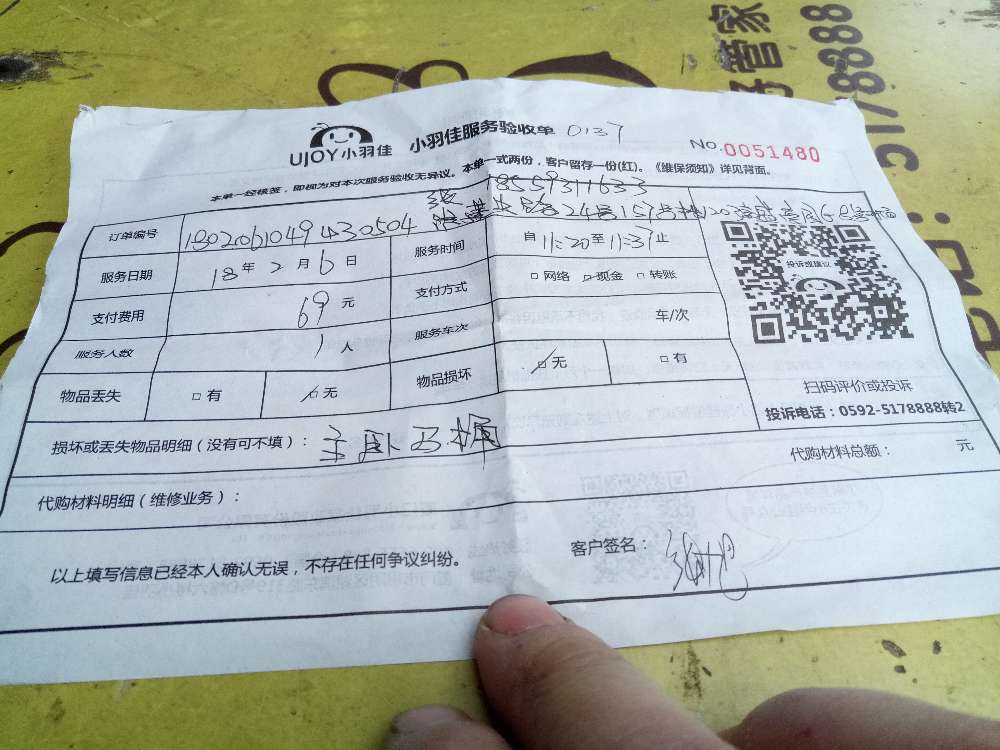 管家
5178888
UJOY小羽佳 小羽佳服务验收单 0137
No.0051480
本单一经核签，即视为对本次服务验收无异议。本单一式两份，客户留存一份(红)。《维保须知》详见背面。
张 18559311633
订单编号 1802061049430504
服务时间 自 11:20 至 11:37 止
服务日期 18 年 2 月 6 日
支付方式 □ 网络 □ 现金 □ 转账
投诉或建议
支付费用 69 元
服务车次 车/次
服务人数 1 人
物品丢失 □ 有 □ 无
物品损坏 □ 无 □ 有
扫码评价或投诉
投诉电话：0592-5178888转2
损坏或丢失物品明细（没有可不填）：
代购材料总额： 元
代购材料明细（维修业务）：
以上填写信息已经本人确认无误，不存在任何争议纠纷。
客户签名：